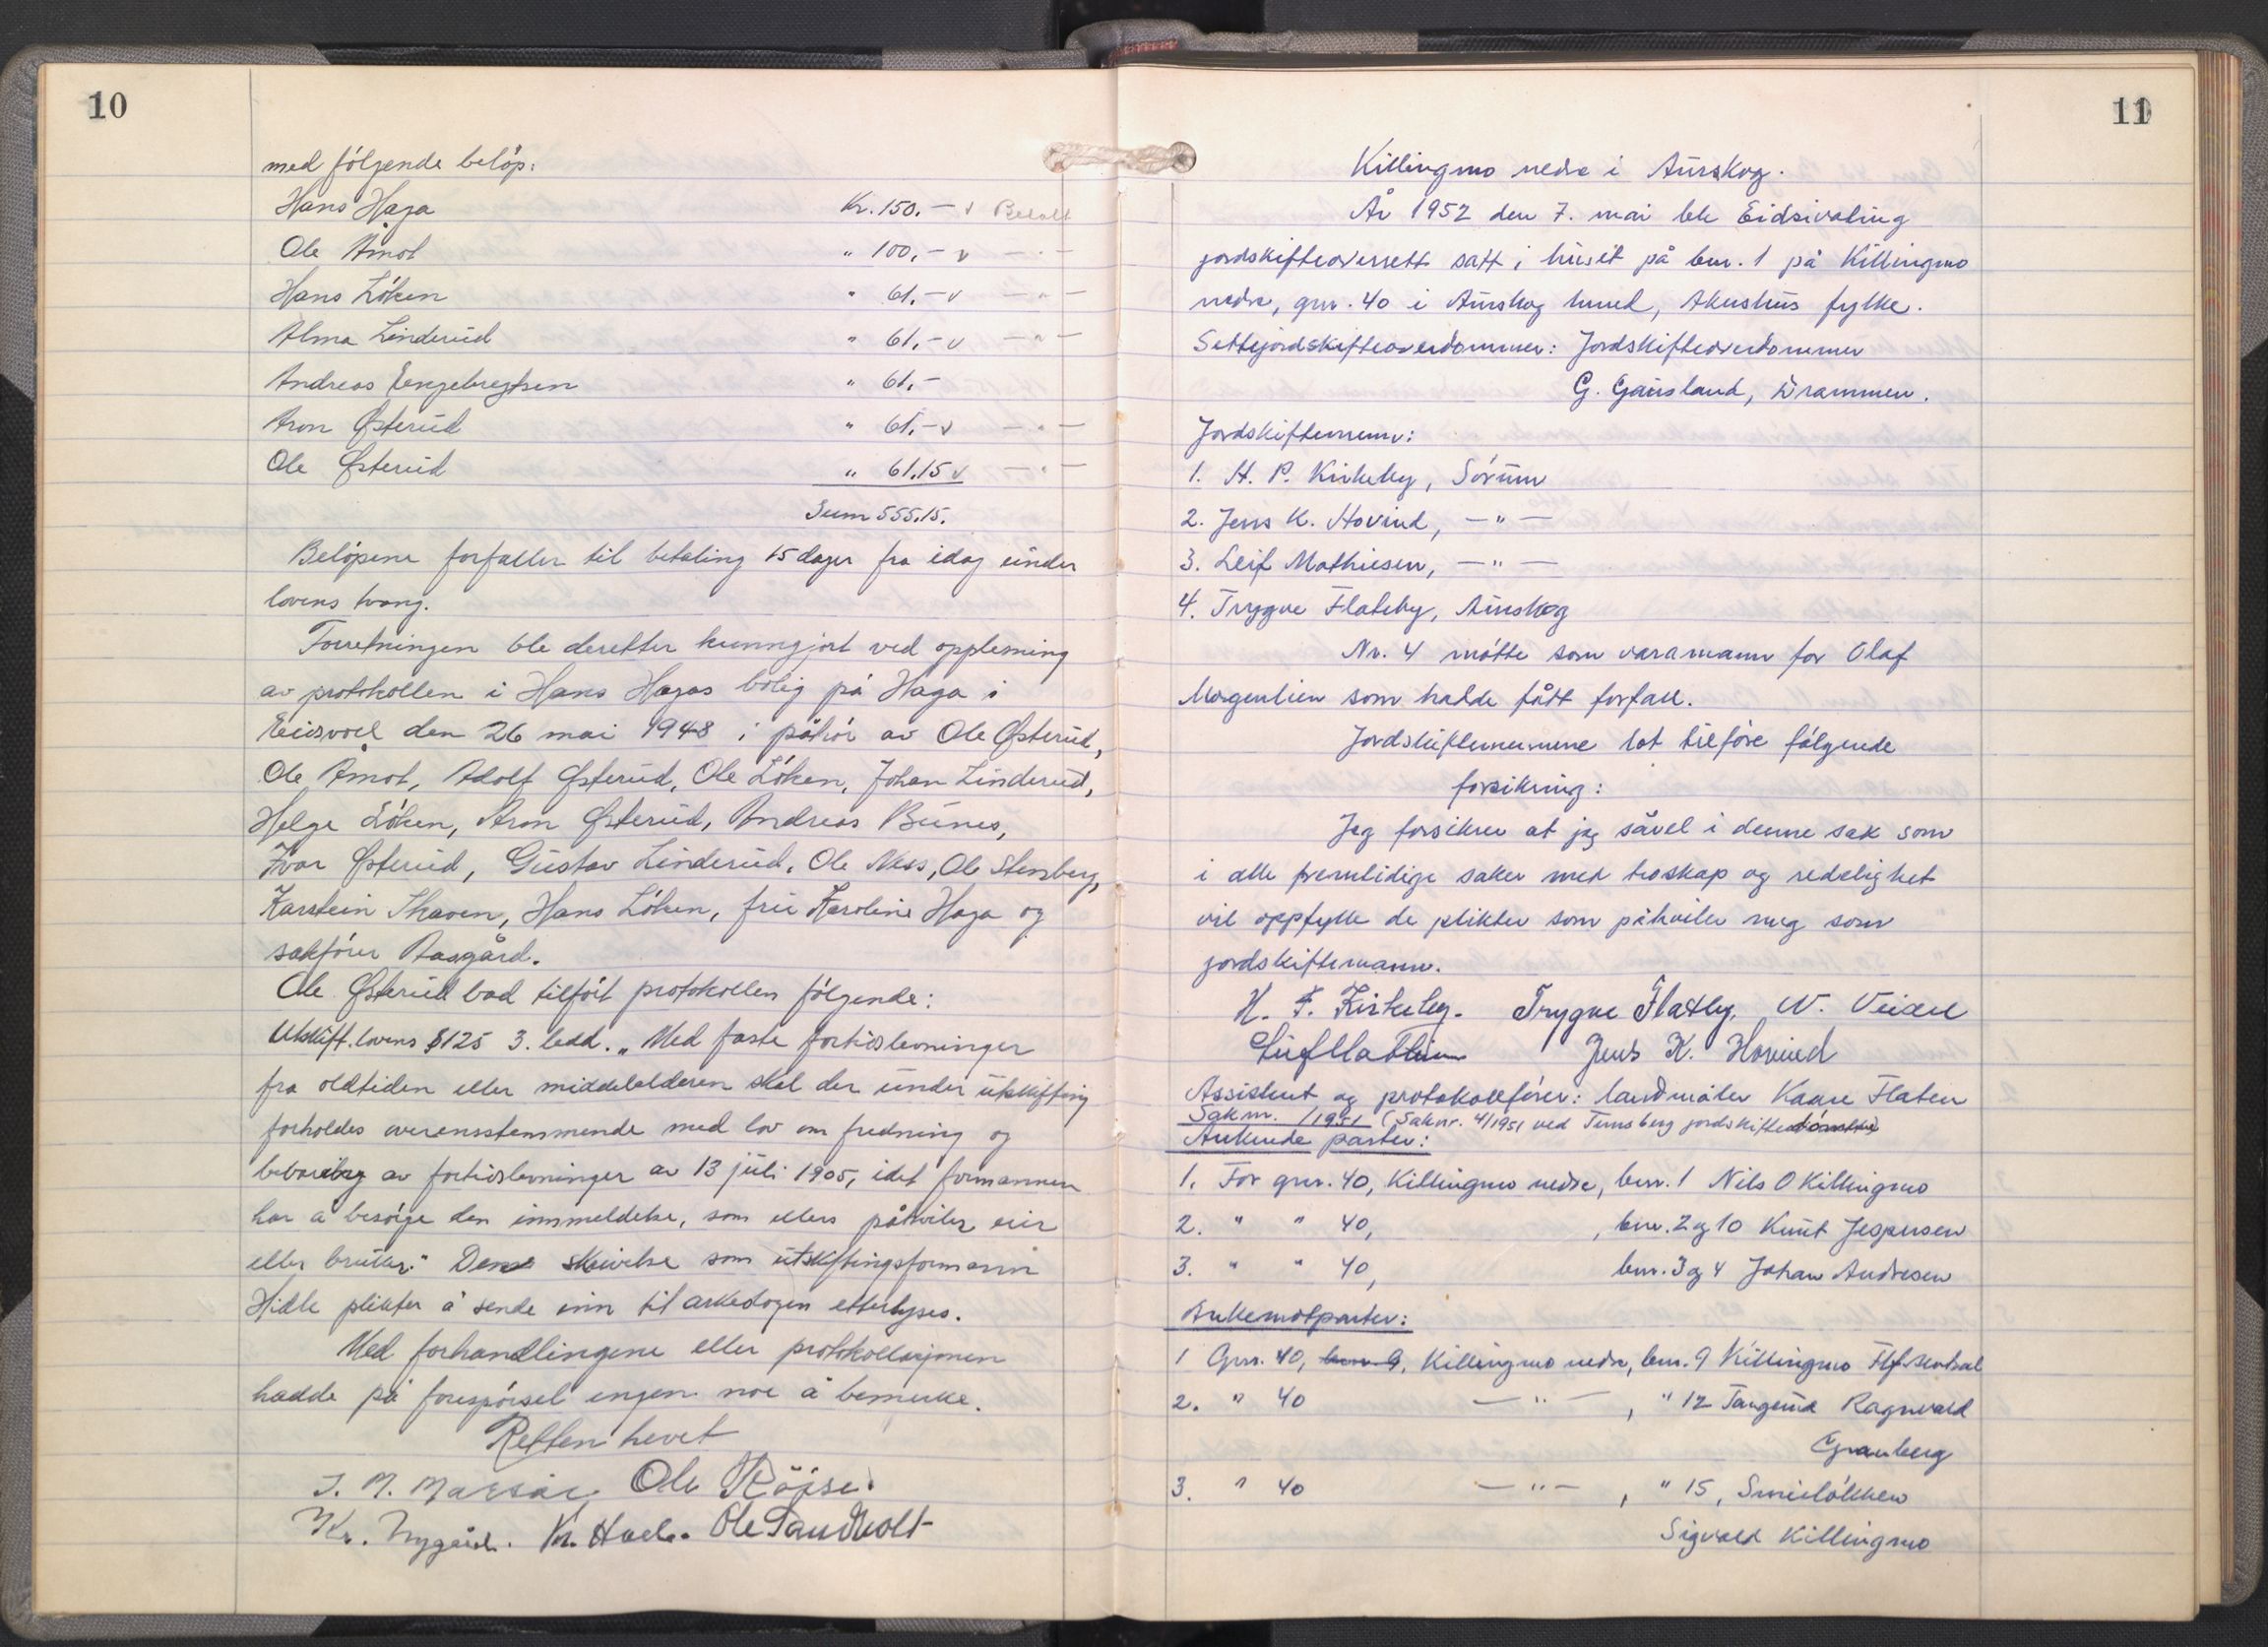 10
med følgende beløp:
Hans Haga Kr. 150.- v Betalt
Ole Åmot " 100,- v - " -
Hans Løken " 61.- v - " -
Alma Linderud " 61,- v - " -
Andreas Engebregtsen " 61,-
Aron Østerud " 61,- v - " -
Ole Østerud " 61,15 v - " -
Sum 555,15.
Beløpene forfaller til betaling 15 dager fra idag under
lovens tvang.
Forretningen ble deretter kunngjort ved opplesning
av protokollen i Hans Hagas bolig på Haga i
Eidsvoll den 26 mai 1948 i påhør av Ole Østerud,
Ole Åmot, Adolf Østerud, Ole Løken, Johan Linderud,
Helge Løken, Aron Østerud, Andreas Bunes,
Ivar Østerud, Gustav Linderud, Ole Ness, Ole Stensberg,
Karstein Skaven, Hans Løken, fru Karoline Haga og
sakfører Aasgård.
Ole Østerud bad tilført protokollen følgende:
Utskift.lovens §125 3. ledd. "Med faste fortidslevninger
fra oldtiden eller middelalderen skal der under utskifting
forholdes overensstemmende med lov om fredning og
bevaring av fortidslevninger av 13 juli 1905, idet formannen
har å besørge den innmeldelse, som ellers påhviler eier
eller bruker." Denne skrivelse som utskiftingsformann
Hidle plikter å sende inn til arkeologen etterlyses.
Ved forhandlingene eller protokollasjonen
hadde på forespørsel ingen noe å bemerke.
Retten hevet
Ole Røise.
Kr. Nygård. Kr. Hoel. Ole Sandholt
11
Killingmo nedre i Aurskog.
År 1952 den 7. mai ble Eidsivating
jordskifteoverrett satt i huset på bnr. 1 på Killingmo
nedre, gnr. 40 i Aurskog herred, Akershus fylke.
Settejordskifteoverdommer: Jordskifteoverdommer
G. Gausland, Drammen.
Jordskiftemenn:
1. H. P. Kirkeby, Sørum
2. Jens K. Hovind, - " -
3. Leif Mathiesen, - " -
4. Trygve Flateby, Aurskog
Nr. 4 møtte som varamann for Olaf
Mogenlien som hadde fått forfall.
Jordskiftemennene lot tilføre følgende
forsikring:
Jeg forsikrer at jeg såvel i denne sak som
i alle fremtidige saker med troskap og redelighet
vil oppfylle de plikter som påhviler meg som
jordskiftemann.
H. P. Kirkeby. Trygve Flatby.
Leif Mathiesen Jens K. Hovind
Assistent og protokollfører: landmåler Kaare Flaten
Sak nr. /1951 (Sak nr. 4/1951 ved Tunsberg jordskifte
Ankende parter:
1. For gnr. 40, Killingmo nedre, bnr. 1 Nils O Killingmo
2. " " 40, , bnr. 2 og 10 Knut Jespersen
3. " " 40, bnr. 3 og 4 Johan Andresen
Ankemotparter:
1 Gnr. 40, bnr. 9, Killingmo nedre, bnr. 9 Killingmo Tlf.sentral
2. " 40 - " - , " 12 Tangeina Ragnvald
Granberg
3. " 40 - " - , " 15, Smieløkken
Sigvald Killingmo